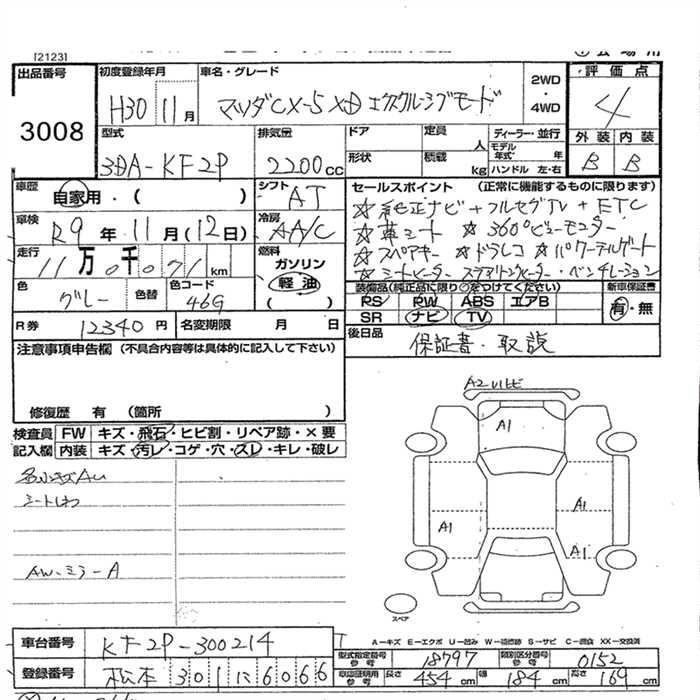 [2123]
出品番号 3008
初度登録年月 H30 11月
車名・グレード マツダCX-5 XD エクスクルーシブモード
2WD・4WD
評価点 4
外装 内装
B B
型式 3DA-KF2P
排気量 2200cc
ドア 形状
定員 人
積載 kg
ディーラー・並行
モデル年式 年
ハンドル 左・右
車歴 自家用・( )
シフト AT
車検 R9年11月(12日)
冷房 AA/C
走行 11万0千071km
燃料 ガソリン 軽油
色 グレー 色替
色コード 46G
R券 12340円
名変期限 月 日
セールスポイント (正常に機能するものに限ります)
☆純正ナビ+フルセグTV+ETC
☆革シート ☆360°ビューモニター
☆スペアキー ☆ドラレコ ☆パワーティルゲート
☆シートヒーター ステアリングヒーター・ベンチレーション
装備品(純正品に限り○をつけてください)
PS PW ABS エアB
SR ナビ TV
新車保証書 有・無
後日品 保証書・取説
注意事項申告欄 (不具合内容等は具体的に記入して下さい)
修復歴 有 (箇所 )
検査員記入欄
FW キズ・飛石・ヒビ割・リペア跡・×要
内装 キズ・汚レ・コゲ・穴・スレ・キレ・破レ
シートしわ
AW・ミラーA
A1
A1
A1
A1
スペア
A-キズ E-エクボ U-凹み W-補修跡 S-サビ C-腐食 XX-交換済
車台番号 KF2P-300214
登録番号 松本 301 に 6066
型式指定番号 参考 18797
類別区分番号 参考 0152
車庫証明用 参考 長さ 454cm 幅 184cm 高さ 169cm